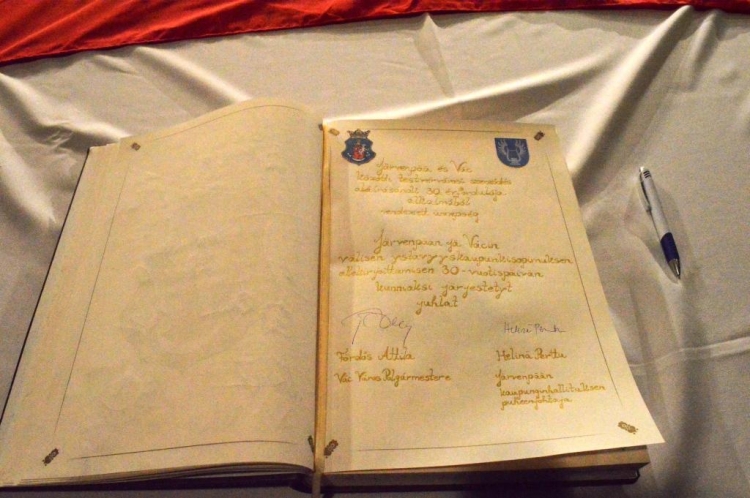 Järvenpää és Vác
közötti testvérvárosi szerződés
aláírásának 30. évfordulója
alkalmából
rendezett ünnepség
Järvenpään ja Vácin
välisen ystävyyskaupunkisopimuksen
allekirjoittamisen 30-vuotispäivän
kunniaksi järjestetyt
juhlat
Fördős Attila
Helinä Perttu
Vác Város Polgármestere
Järvenpään
kaupunginhallituksen
puheenjohtaja